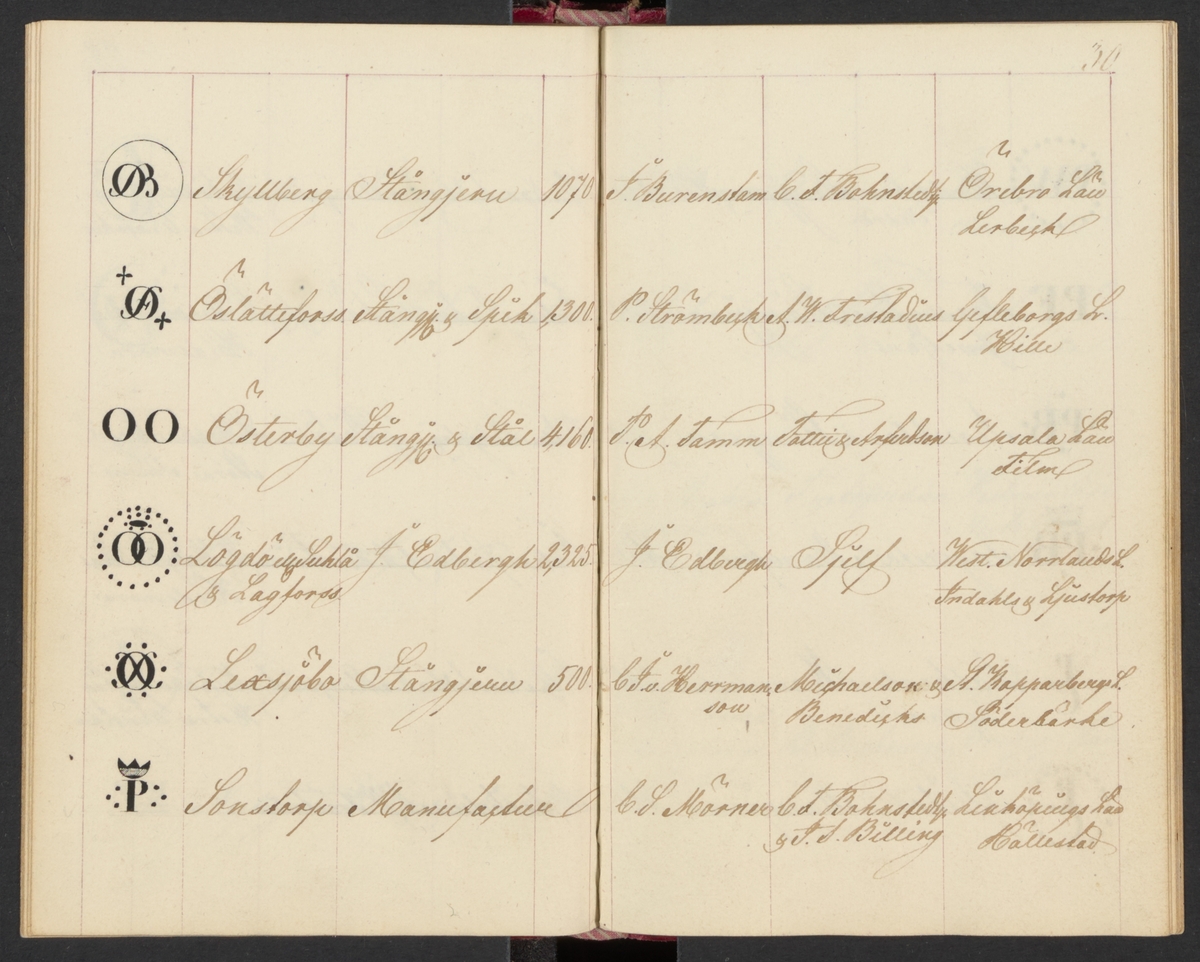 30
Skyllberg Stångjern 1070 F. Burenstam C. F. Bohnstedt Örebro Län
Lerbeck
Öslättforss Stångj. & Spik 1,300. P. Strömbeck A. W. Frestadius Gefleborgs L.
Hille
OO Österby Stångj. & Stål 4,160. P. A. Tamm Tottie & Arfwedson Upsala Län
Film
Lögdö J. Edbergh 2,325. J. Edbergh Sjelf West. Norrlands L.
& Lagforss Indahls & Ljustorp
Lexsjöbo Stångjern 500. Herrman Michaelson & St. Kopparbergs L.
son Benedicks Söderbärke
P Sonstorp Manufactur C. S. Mörner C. F. Bohnstedt Linköpings Län
& F. F. Billing Hällestad